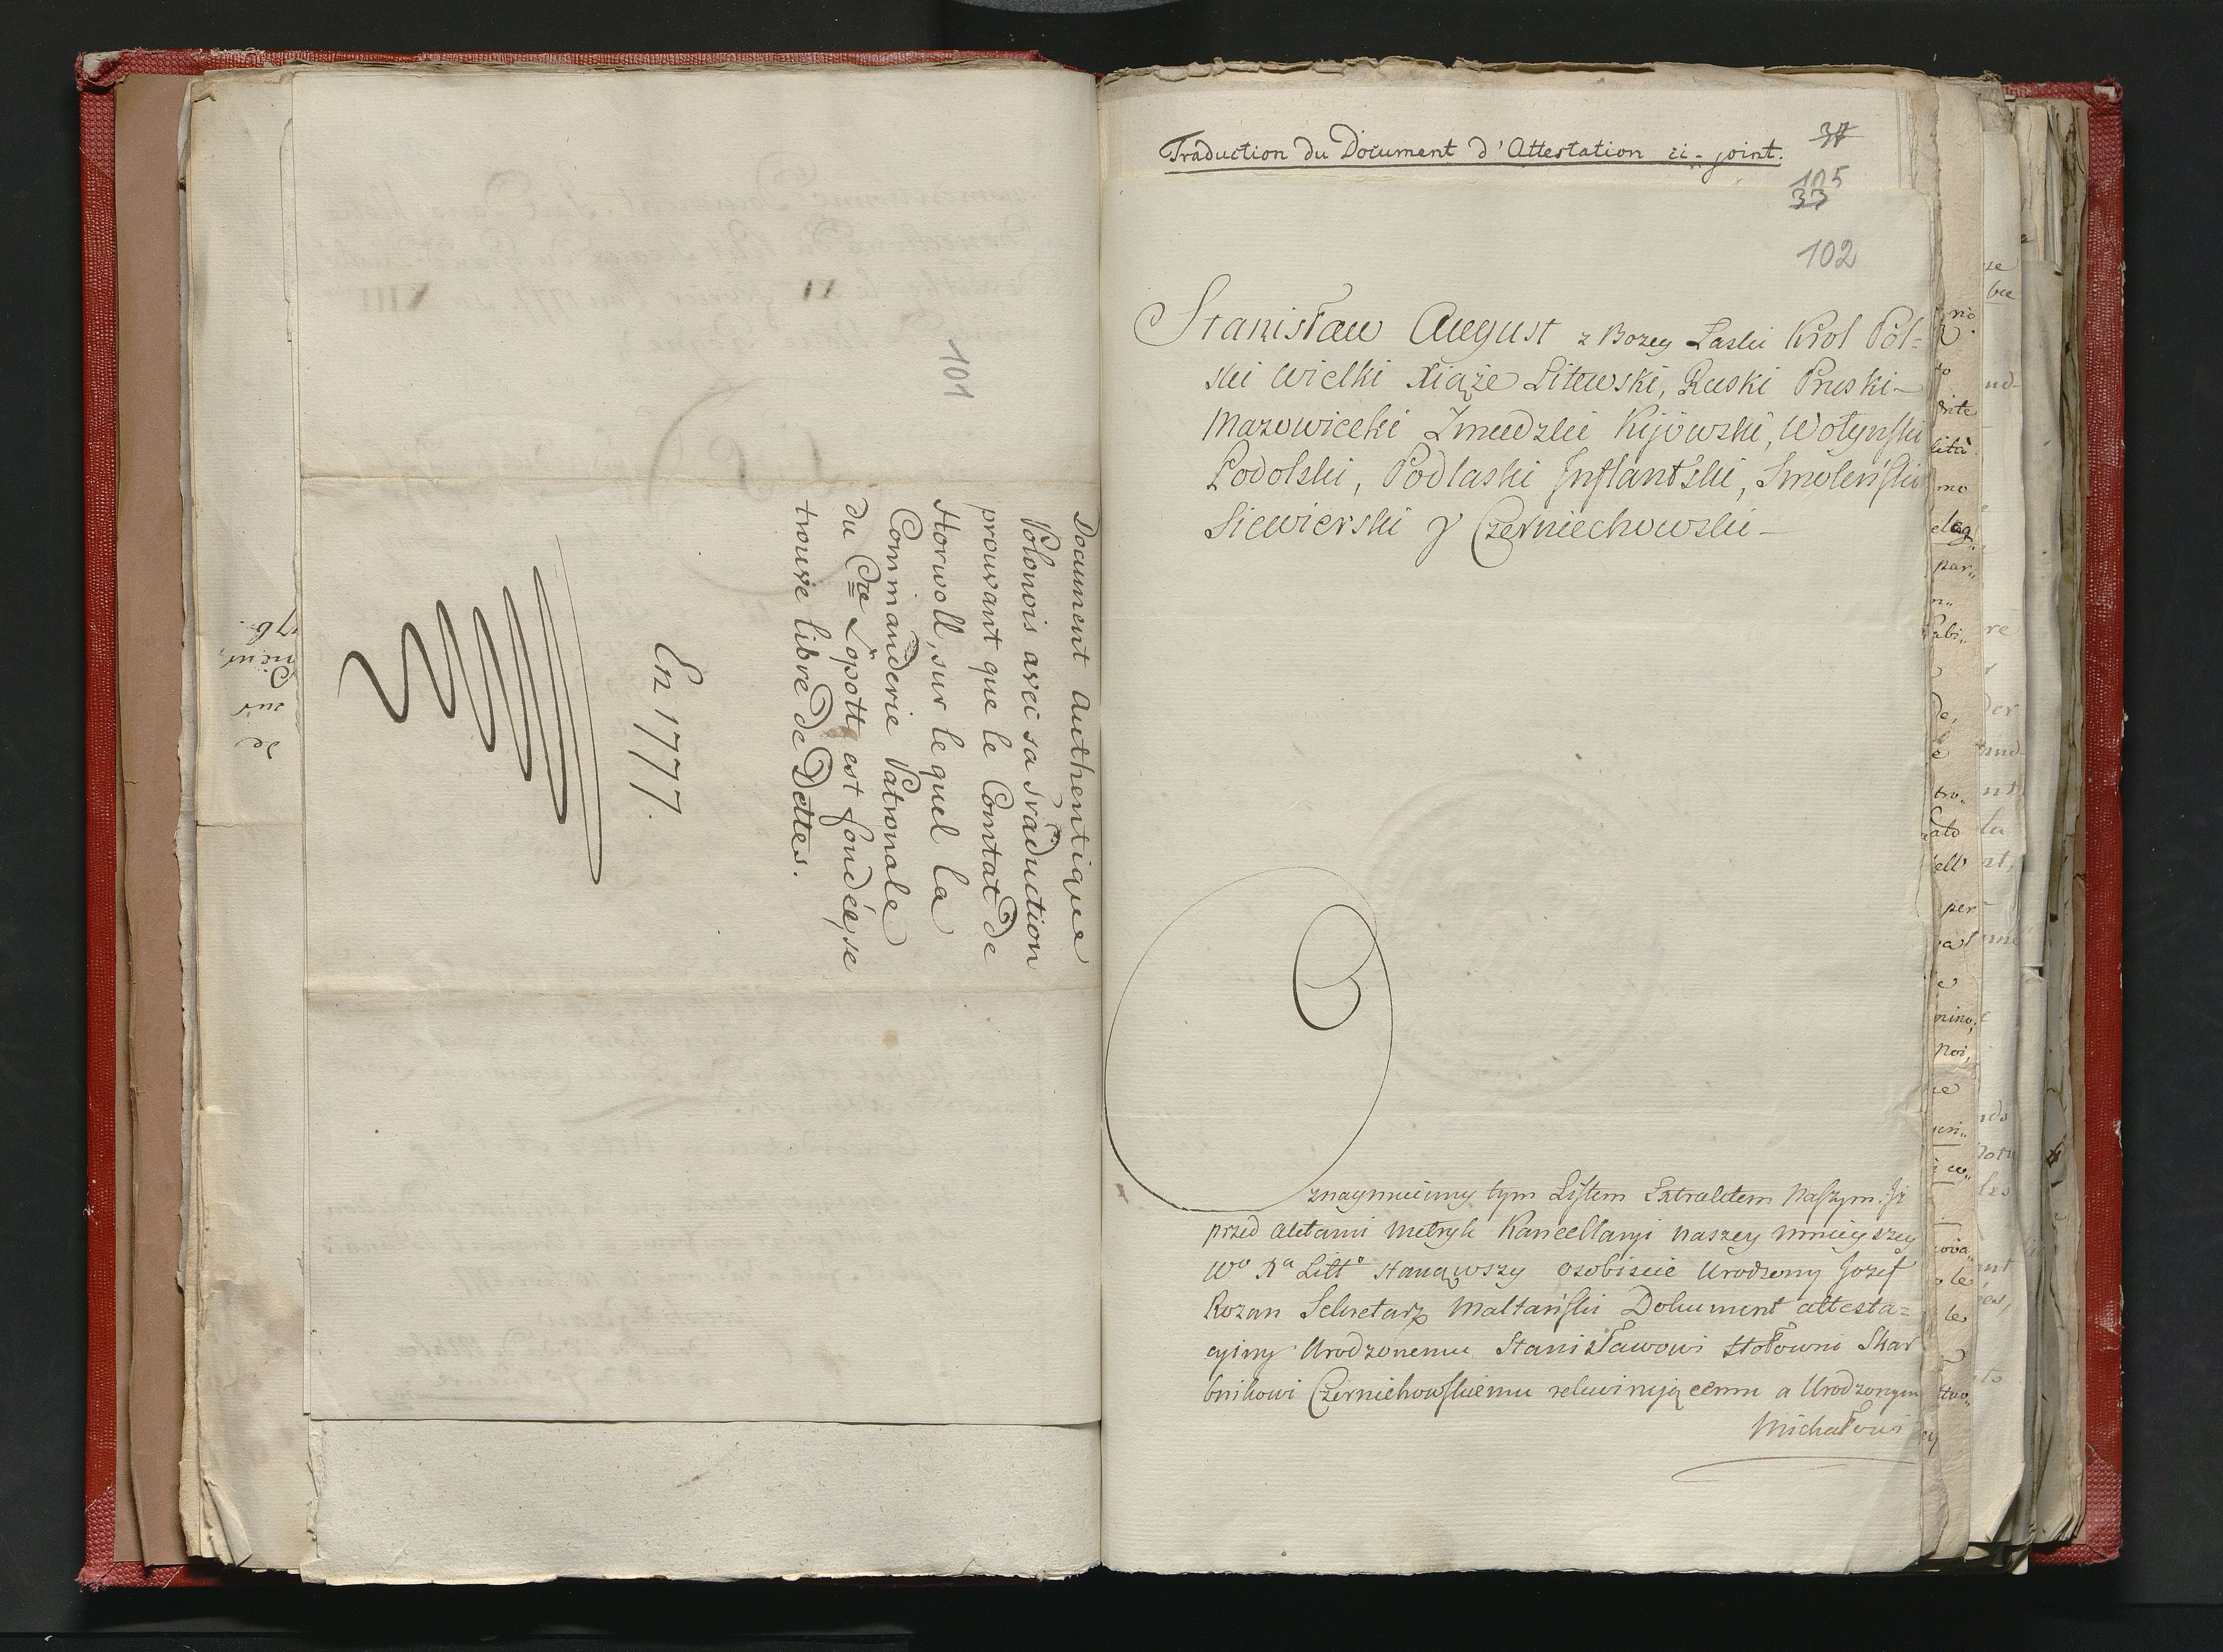 101
Document Authentique
Polonois avec sa Traduction
prouvant que le Comtat de
Horwoll, sur lequel la
Commanderie Patronale
du Cte Łopott est fondée, se
trouve libre de Dettes.
En 1777.
Traduction du Document d'Attestation ci-joint.
37
105
33
102
Stanisław August z Bozey Łaski Krol Pol=
ski Wielki Xiąże Litewski, Ruski Pruski
Mazowiecki Zmudzki Kijowski, Wołynski
Podolski, Podlaski Inflantski, Smoleński
Siewierski y Czerniechowski
Oznaymuiemy tym Listem Extraktem Naszym. Iż
przed Aktami Metryk Kancellaryi naszey mnieyszey
Wo Xa Litto stanąwszy osobiscie Urodzony Jozef
Rozan Sekretarz Maltański Dokument attesta=
cyiny Urodzonemu Stanisławowi Hołowni Skar
bnikowi Czerniehowskiemu rekwirującemu a Urodzonym
Michałowi